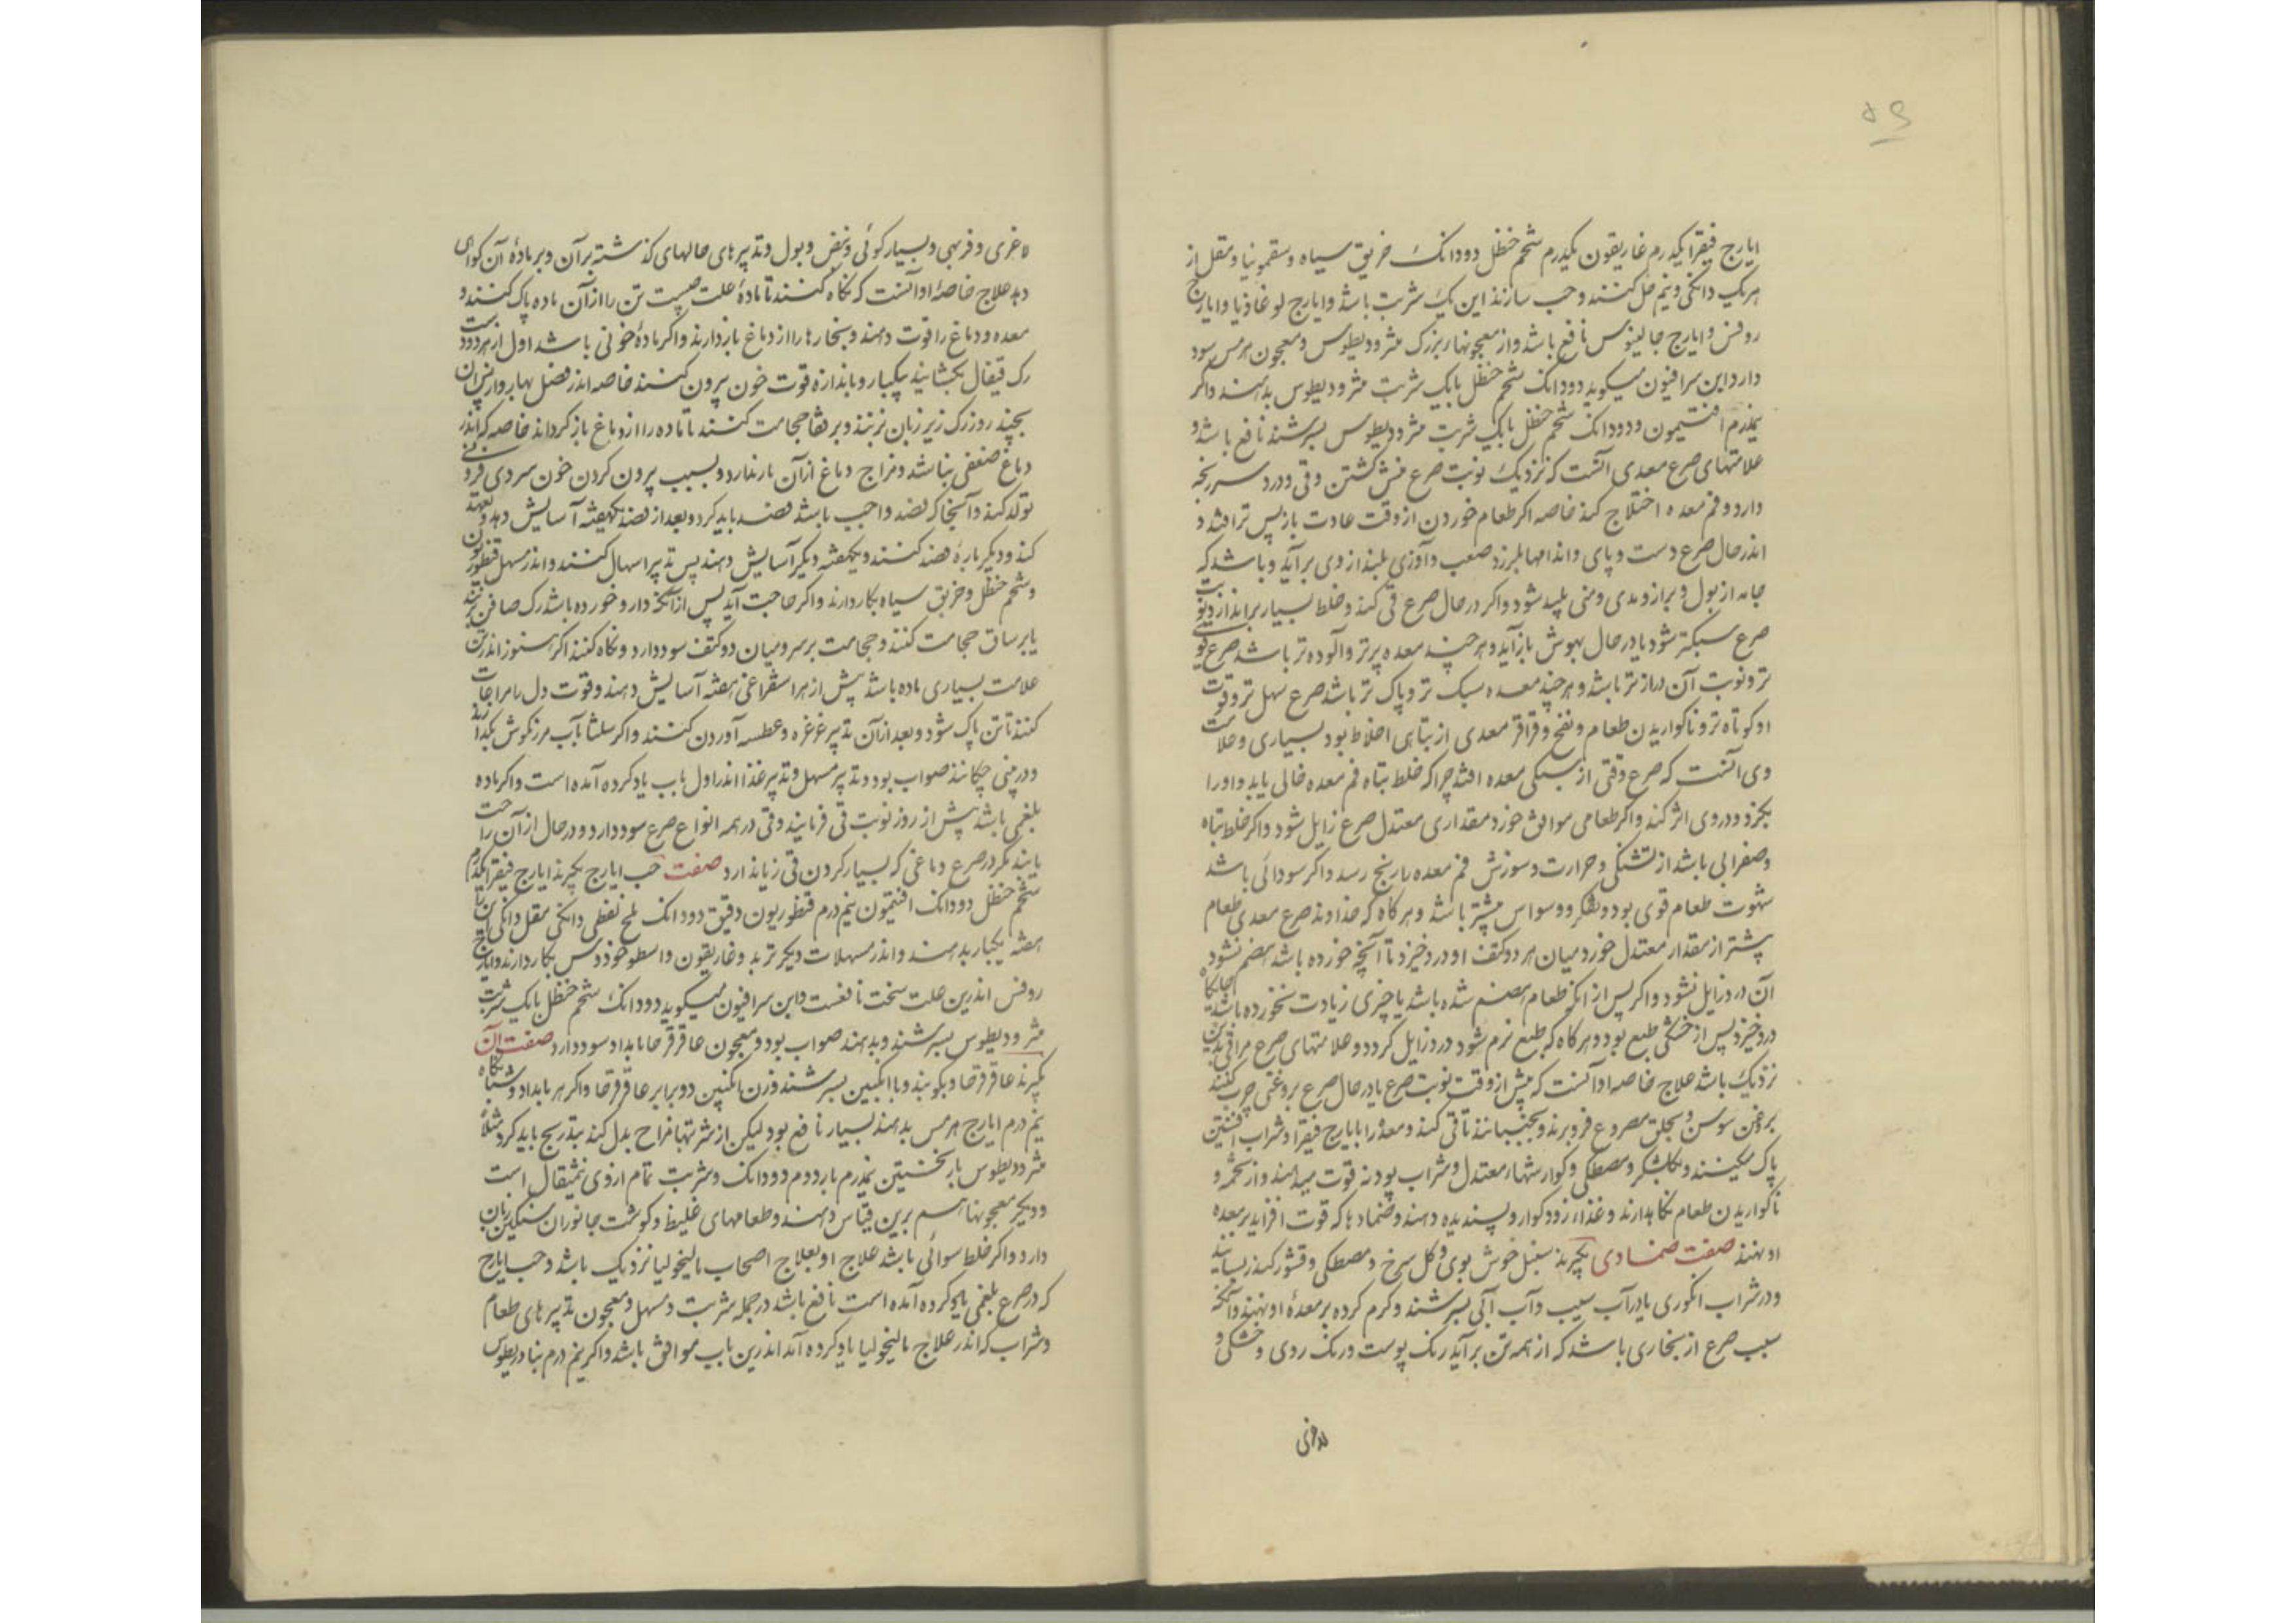 ۵۹
ایارج فیقرا یکدرم غاریقون یکدرم شحم حنظل دو دانک خربق سیاه و سقمونیا و مقل از
هر یک دانکی و نیم حل کنند و حب سازند این یک شربت باشد و ایارج لوغاذیا و ایارج
روفس و ایارج جالینوس نافع باشد و از معجونها بزرک مثرودیطوس و معجون هرمس سود
دارد ابن سرافیون میکوید دو دانک شحم حنظل با یک شربت مثرودیطوس بدهند و اکر
نیمدرم افتیمون و دو دانک شحم حنظل با یک شربت مثرودیطوس بسرشند نافع باشد و
علامتهای صرع معدی آنست که نزدیک نوبت صرع غش کشتن و قی و درد سر رنجه
دارد و فم معده اختلاج کند خاصه اکر طعام خوردن از وقت عادت باز پس تر افتد و
اندر حال صرع دست و پای و اندامها بلرزد صعب و آوازی بلند از وی برآید و باشد که
جامه از بول و براز و مدی و منی پلید شود و اکر در حال صرع قی کند و خلط بسیار براندازد نوبت
صرع سبکتر شود یا در حال بهوش بازآید و هر چند معده پرتر و آلوده تر باشد صرع قوی
تر و نوبت آن دراز تر باشد و هر چند معده سبک تر و پاک تر باشد صرع سهل تر و وقت
او کوتاه تر و ناکواریدن طعام و نفخ و قراقر معدی از تباهی اخلاط بود بسیاری و علامت
وی آنست که صرع وقتی از سبکی معده افتد چرا که خلط تباه فم معده خالی یابد و او را
بکزد و در وی اثر کند و اکر طعامی موافق خورد مقداری معتدل صرع زایل شود و اکر خلط تباه
و صفرایی باشد از تشنکی و حرارت و سوزش فم معده با رنج رسد و اکر سودائی باشد
شهوت طعام قوی بود و تفکر و وسواس بیشتر باشد و هر کاه که خداوند صرع معدی طعام
بیشتر از مقدار معتدل خورد میان هر دو کتف او درد خیزد تا آنچه خورده باشد هضم نشود
آن درد زایل نشود و اکر پس از آنکه طعام هضم شده باشد یا چیزی زیادت نخورده باشد
درد خیزد پس از خشکی طبع بود و هر کاه که طبع نرم شود درد زایل کردد و علامتهای صرع مراقی بدین
نزدیک باشد علاج خاصه او آنست که پیش از وقت نوبت صرع یا در حال صرع بروغنی چرب کنند
بروغن سوسن و بحلق مصروع فرو برند و بجنبانند تا قی کند و معده را با یارج فیقرا و شراب افسنتین
پاک میکنند و بکلشکر و مصطکی و کوارشها معتدل و شراب پودنه قوت میدهند و از تخمه و
ناکواریدن طعام نکاهدارند و غذا زود کوار و پسندیده دهند و ضمادها که قوت افزاید بر معده
او نهند صفت ضمادی بکیرند سنبل خوش بوی و کل سرخ و مصطکی و قشور کندر بسایند
و در شراب انکوری یا در آب سیب و آب آبی بسرشند و کرم کرده بر معدهٔ او نهند و آنکه
سبب صرع از بخاری باشد که از همه تن برآید رنک پوست و رنک روی و خشکی و
لاغری
لاغری و فربهی و بسیار کوئی و نبض و بول و تدبیرهای حالهای کذشته بر آن و بر مادهٔ آن کواهی
دهد علاج خاصهٔ او آنست که نکاه کنند تا مادهٔ علت چیست تن را از آن ماده پاک کنند و
معده و دماغ را قوت دهند و بخارها را از دماغ بازدارند و اکر مادهٔ خونی باشد اول از هر دو دست
رک قیفال بکشایند بیکبار و باندازه قوت خون بیرون کنند خاصه اندر فصل بهار و از پس آن
بچند روز رک زیر زبان بزنند و بر قفا حجامت کنند تا ماده را از دماغ باز کرداند خاصه که اندر
دماغ ضعفی نباشد و مزاج دماغ از آن باز ندارد و بسبب بیرون کردن خون سردی فزونی
تولد کند و آنجا که فصد واجب باشد فصد باید کرد و بعد از فصد یکهفته آسایش دهد و تعهد
کند و دیکر باره فصد کنند و یکهفته دیکر آسایش دهند پس تدبیر اسهال کنند و اندر مسهل قنطوریون
و شحم حنظل و خربق سیاه بکار دارند و اکر حاجت آید پس از آنکه دارو خورده باشد رک صافن بزنند
یا بر ساق حجامت کنند و حجامت بر سر و میان دو کتف سود دارد و نکاه کنند اکر هنوز اندر تن
علامت بسیاری ماده باشد پیش از هر استفراغی هفته آسایش دهند و قوت دل را مراعات
کنند تا تن پاک شود و بعد از آن تدبیر غرغره و عطسه آوردن کنند و اکر سلثا بآب مرزنکوش بکدازند
و در بینی چکانند صواب بود و تدبیر مسهل و تدبیر غذا اندر اول باب یاد کرده آمده است و اکر ماده
بلغمی باشد پیش از روز نوبت قی فرمایند و قی در همه انواع صرع سود دارد و در حال از آن راحت
یابند مکر در صرع دماغی که بسیار کردن قی زیان دارد صفت حب ایارج بکیرند ایارج فیقرا یکدرم
شحم حنظل دو دانک افتیمون نیم درم قنطوریون دقیق دو دانک ملح نفطی دانکی مقل دانکی این را
هفته یکبار بدهند و اندر مسهلات دیکر تربد و غاریقون و اسطوخودوس بکار دارند و ایارج
روفس اندرین علت سخت نافعست و ابن سرافیون میکوید دو دانک شحم حنظل با یک شربت
مثرودیطوس بسرشند و بدهند صواب بود و معجون عاقرقرحا بامداد سود دارد صفت آن
بکیرند عاقرقرحا و بکوبند و با انکبین بسرشند وزن انکبین دو برابر عاقرقرحا و اکر هر بامداد و شبانکاه
نیم درم ایارج هرمس بدهند بسیار نافع بود لیکن از شربتها مزاح بدل کند بتدریج باید کرد مثلاً
مثرودیطوس بار نخستین نیمدرم بار دوم دو دانک و شربت تمام از وی نیمثقال است
و دیکر معجونها هم برین قیاس دهند و طعامهای غلیظ و کوشت جانوران سنکین زیان
دارد و اکر خلط سوائی باشد علاج او بعلاج اصحاب مالیخولیا نزدیک باشد و حب ایارج
که در صرع بلغمی یاد کرده آمده است نافع باشد در جمله شربت و مسهل و معجون تدبیرهای طعام
و شراب که اندر علاج مالیخولیا یاد کرده آمد اندرین باب موافق باشد و اکر نیم درم بنادریطوس